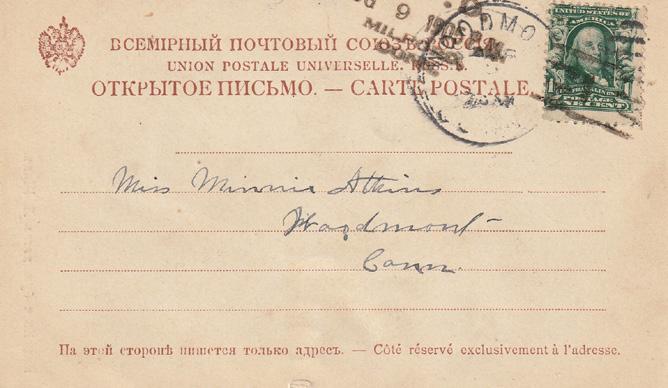 ВСЕМІРНЫЙ ПОЧТОВЫЙ СОЮЗЪ. РОССІЯ.
UNION POSTALE UNIVERSELLE. RUSSIE.
ОТКРЫТОЕ ПИСЬМО. — CARTE POSTALE.
9
MILF
WOODMO
UNITED STATES OF AMERICA
1 FRANKLIN 1
POSTAGE
ONE CENT
Miss Minnie Atkins
Woodmont
Conn.
На этой сторонѣ пишется только адресъ. — Côté réservé exclusivement à l'adresse.